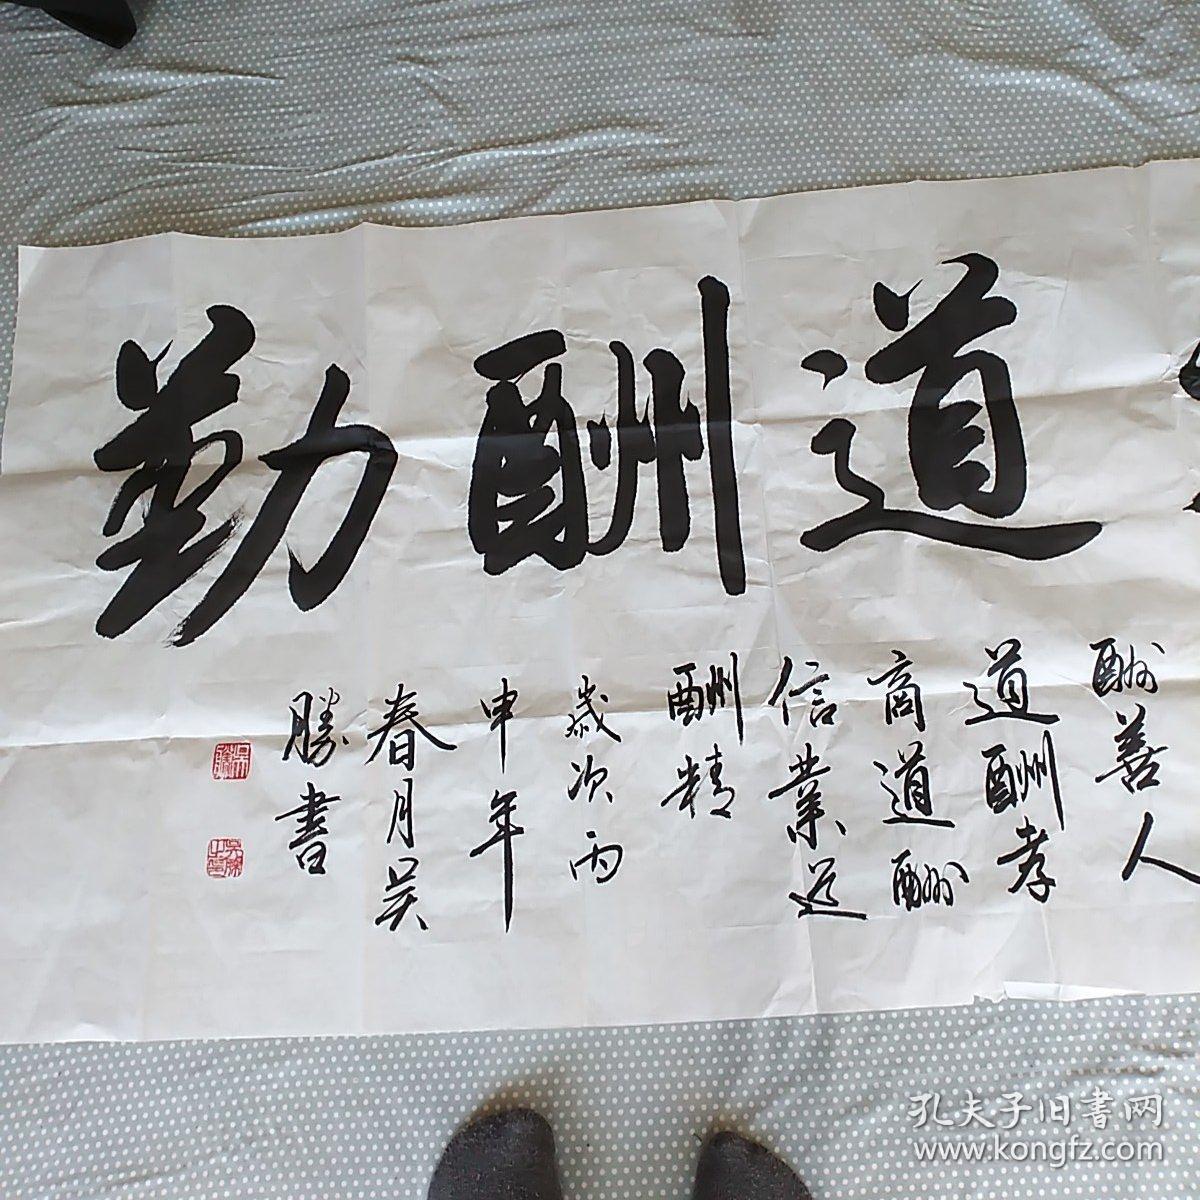 道酬勤
酬善人
道酬孝
商道酬
信業道
酬精
歲次丙
申年
春月吴
勝書
孔夫子旧书网
www.kongfz.com